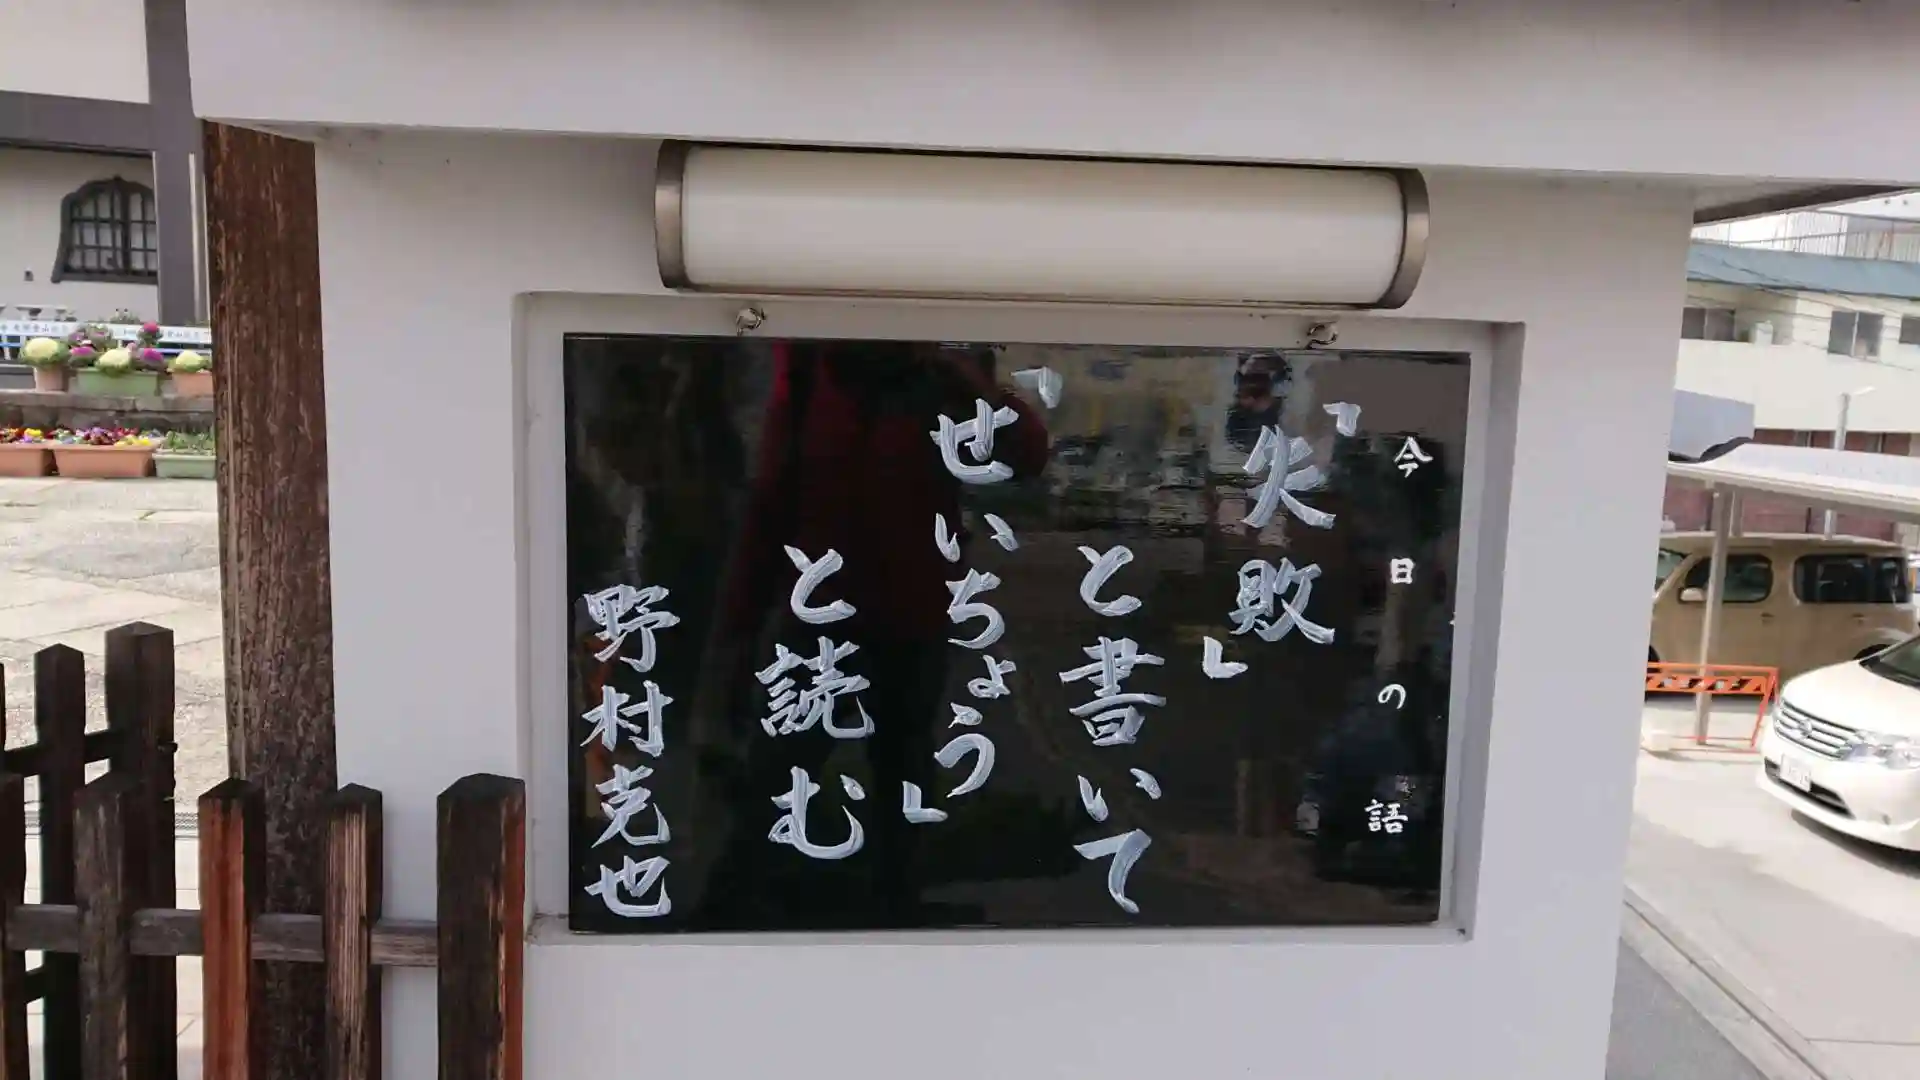 今日の語
「失敗」
と書いて
「せいちょう」
と読む
野村克也